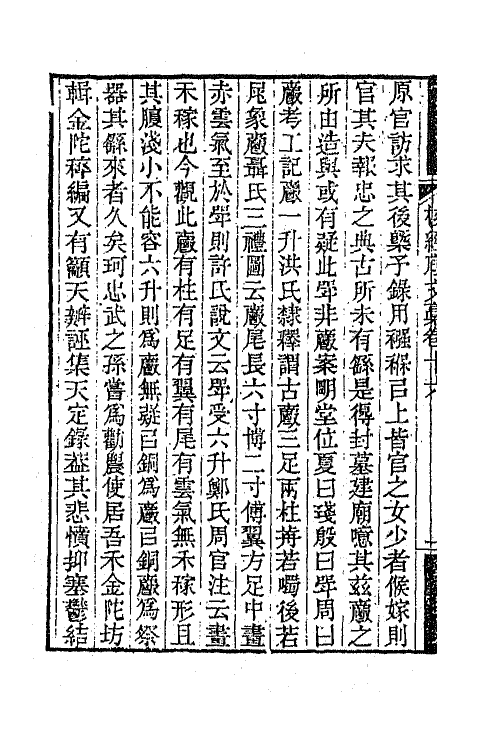 原官訪求其後槩予錄用襁褓㠯上皆官之女少者候嫁則
官其夫報忠之典古所未有繇是得封墓建廟噫其兹𤔲之
所由造與或有疑此斝非爵案朙堂位夏曰琖殷曰斝周曰
爵考工記爵一升洪氏隸釋謂古爵三足兩柱持若噣後若
尾象爵聶氏三禮圖云爵尾長六寸博二寸傅翼方足中畫
赤雲氣至於斝則許氏說文云斝受六升鄭氏周官注云畫
禾稼也今觀此爵有柱有足有翼有尾有雲氣無禾稼形且
其腹淺小不能容六升則為爵無疑㠯銅為爵㠯銅爵為祭
器其繇來者久矣珂忠武之孫嘗為勸農使居吾禾金陀坊
輯金陀稡編又有籲天辨誣集天定錄葢其悲憤抑塞鬱結
卷十六